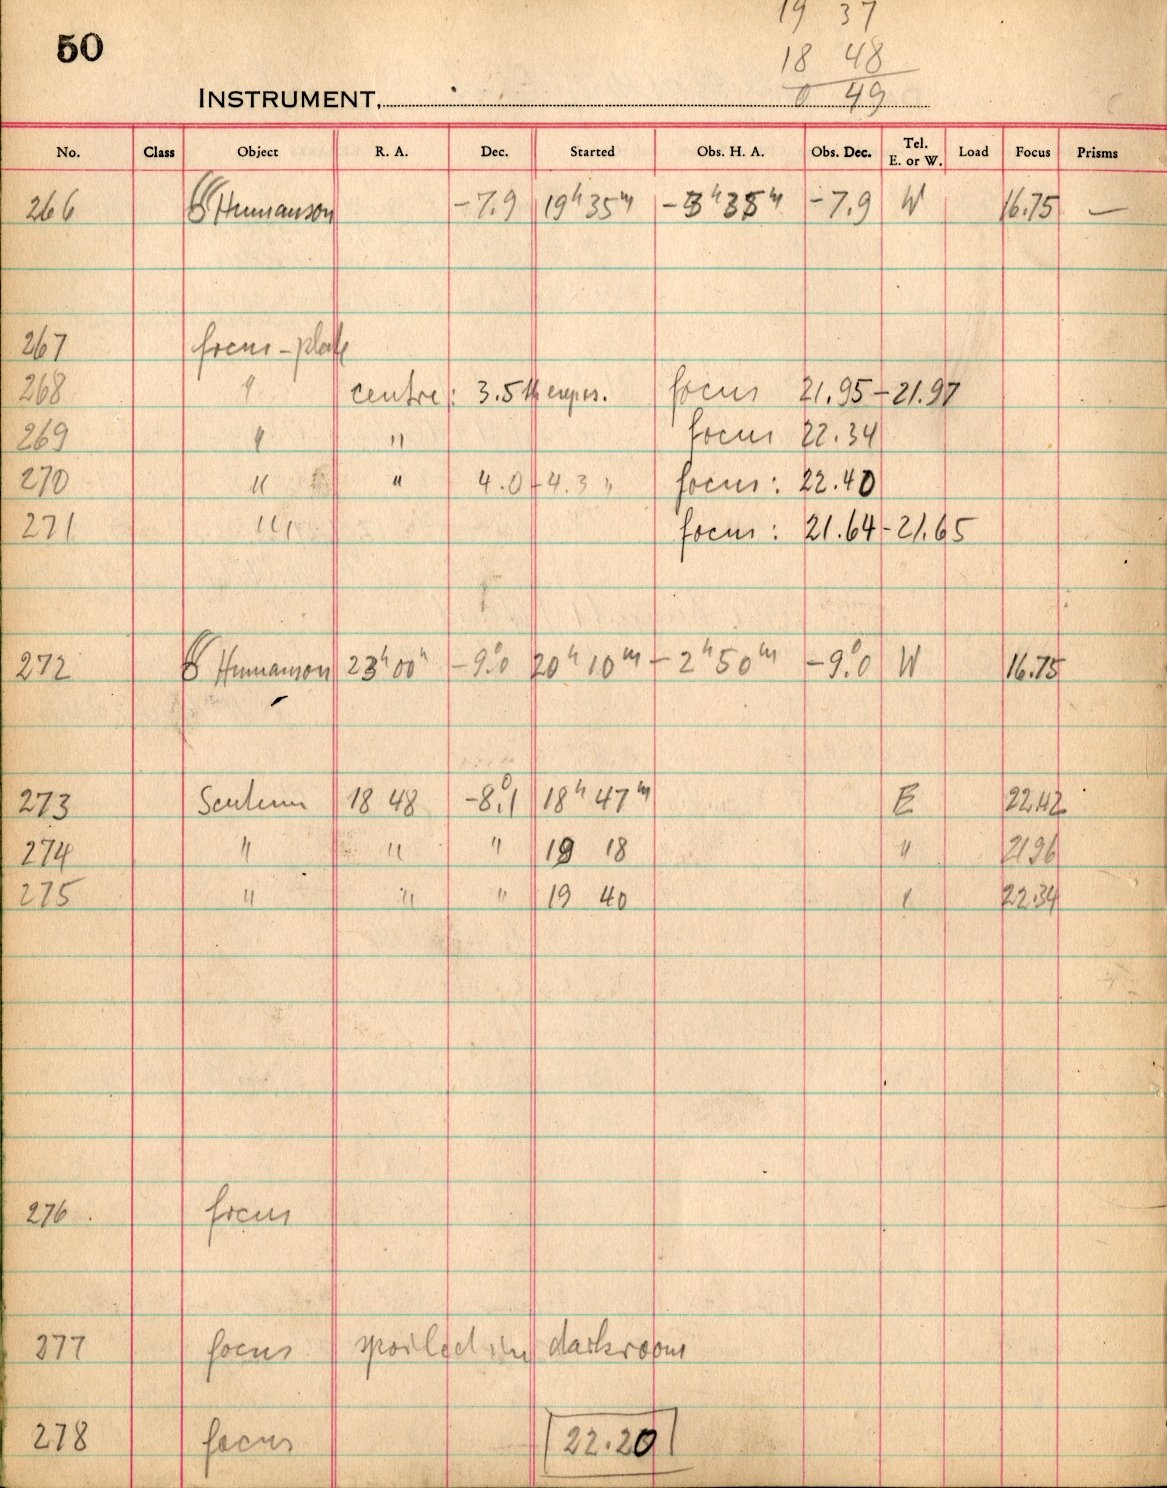 19 37
50
18 48
INSTRUMENT,
0 49
No. Class Object R. A. Dec. Started Obs. H. A. Obs. Dec. Tel. E. or W. Load Focus Prisms
266 ☄ Humanson -7.9 19ʰ35ᵐ -3ʰ35ᵐ -7.9 W 16.75 —
267 focus-plate
268 " centre: 3.5 th expos. focus 21.95-21.97
269 " " focus 22.34
270 " " 4.0-4.3 " focus: 22.40
271 " focus: 21.64-21.65
272 ☄ Humanson 23ʰ00ᵐ -9°.0 20ʰ10ᵐ -2ʰ50ᵐ -9°.0 W 16.75
273 Scutum 18 48 -8°.1 18ʰ47ᵐ E 22.42
274 " " " 19 18 " 21.96
275 " " " 19 40 " 22.34
276 focus
277 focus spoiled in darkroom
278 focus 22.20